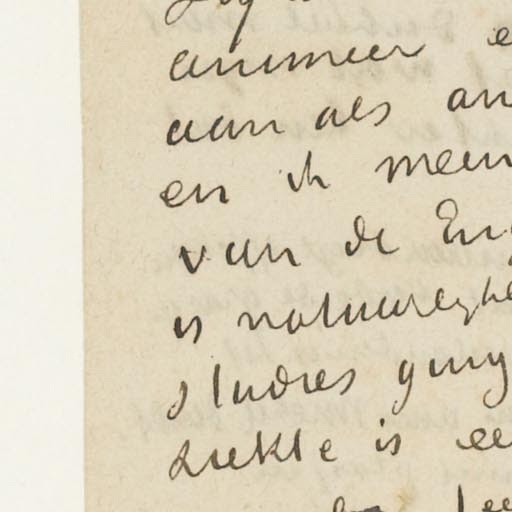 animeer
aan als an
en ik meen
van de Eng
is natuurlijke
studies ging
ziekte is ee